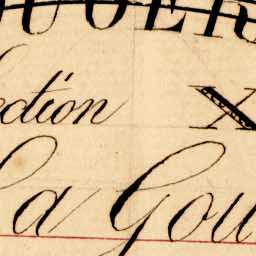 OUGER
ection X
La Gou